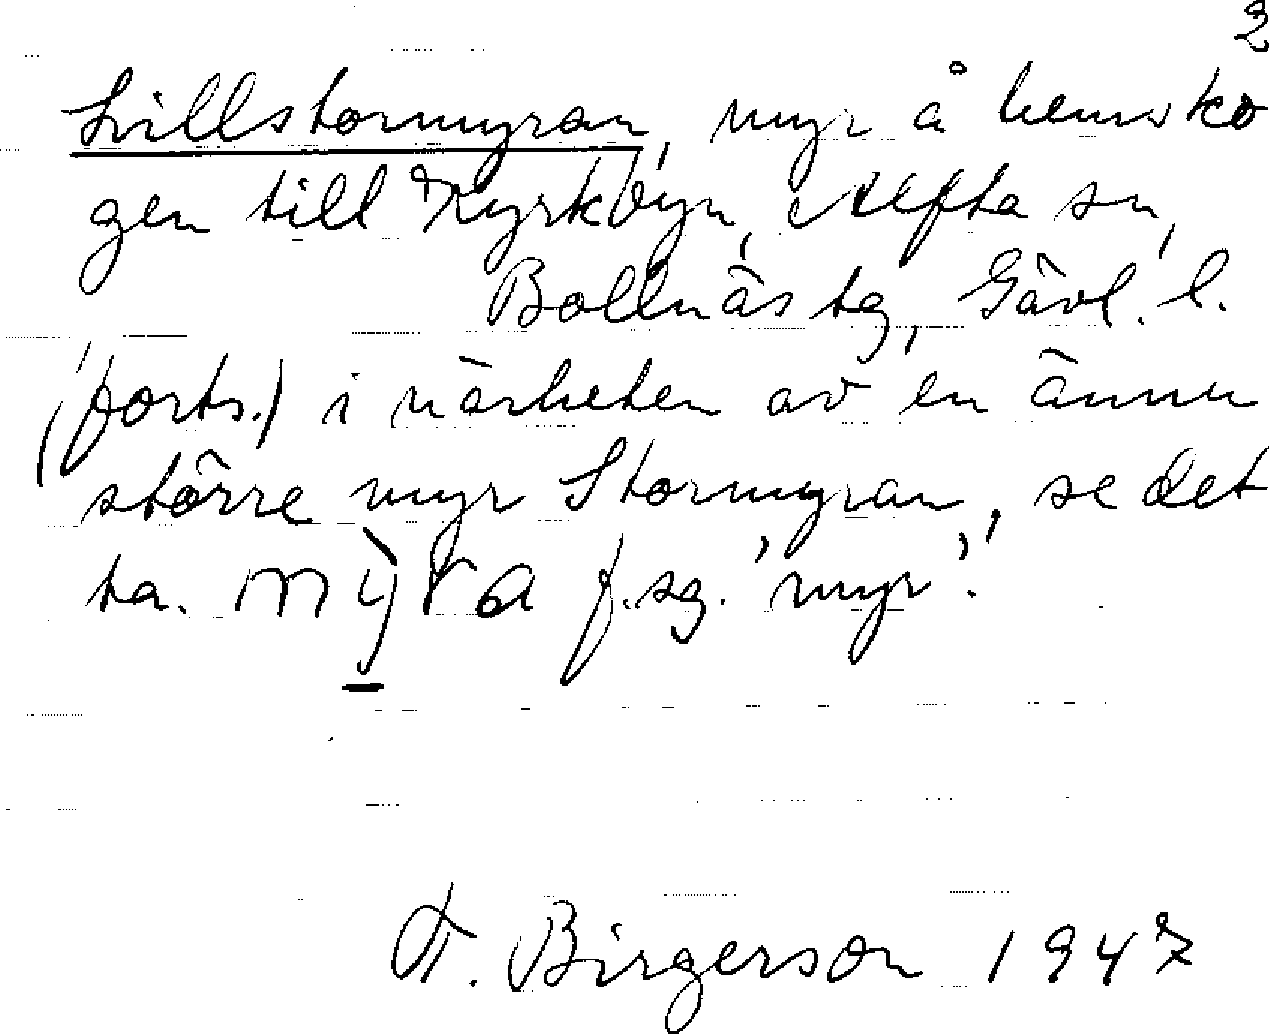 2
Lillstormyran, myr å hemsko
gen till Kyrkbyn, Alfta sn,
Bollnäs tg, Gävl. l.
(forts.) i närheten av en ännu
större myr Stormyran, se det
ta. mỳra f.sg. 'myr'.
F. Birgerson 1947